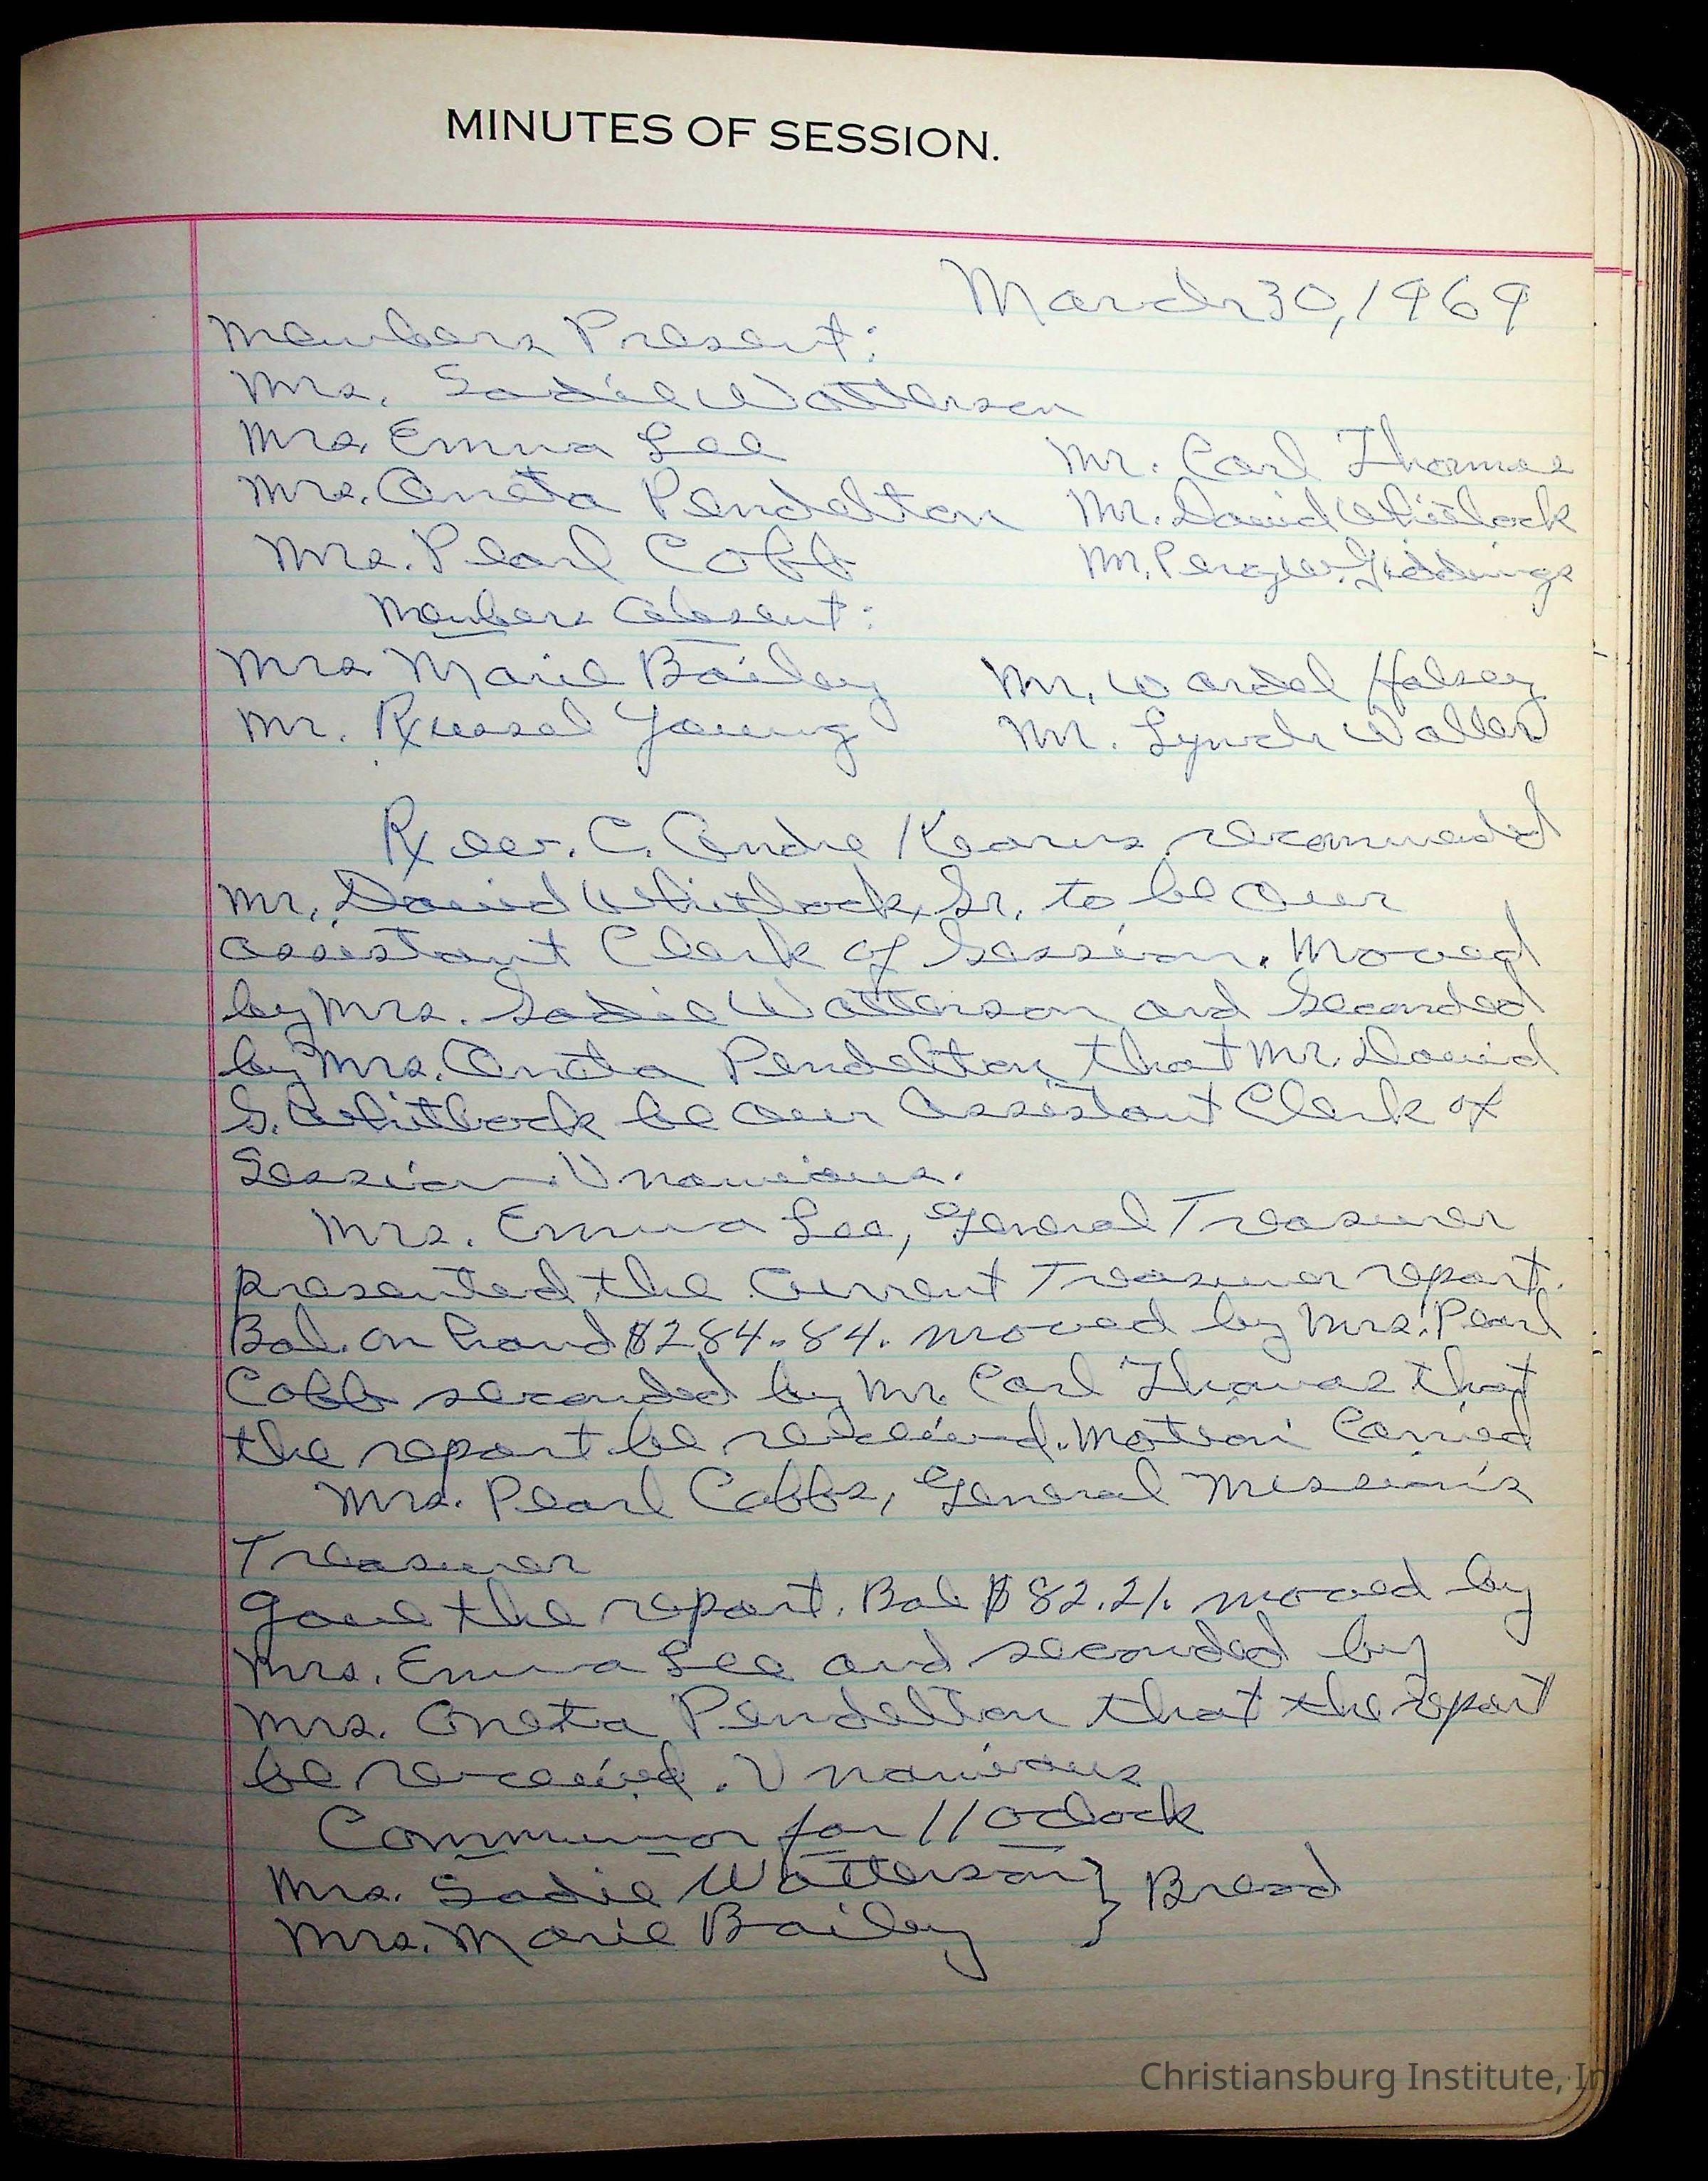 MINUTES OF SESSION.
March 30, 1969
Members Present:
Mrs. Sadie Watterson
Mrs. Emma Lee
Mr. Carl Thomas
Mrs. Oneta Pendelton
Mr. David Whitlock
Mrs. Pearl Cobb
Mr. Giddings
Members Absent:
Mrs. Marie Bailey
Mr. Wardel Halsey
Mr. Russel Young
Mr. Lynch Waller
Rev. C. Andre Kearns recommeded
Mr. David Whitlock, Sr. to be our
assistant Clerk of Session. Moved
by Mrs. Sadie Watterson and Seconded
by Mrs. Oneta Pendelton that Mr. David
S. Whitlock be our Assistant Clerk of
Session. Unanious.
Mrs. Emma Lee, General Treasurer
presented the Current Treasurer report.
Bal. on hand $284.84. moved by Mrs. Pearl
Cobb seconded by Mr. Carl Thomas that
the report be received. Motion Carried
Mrs. Pearl Cobbs, General Mission's
Treasurer
gave the report. Bal $82.21. moved by
Mrs. Emma Lee and seconded by
Mrs. Oneta Pendelton that the report
be received. Unanious
Communion for 11 oclock
Mrs. Sadie Watterson } Bread
Mrs. Marie Bailey
Christiansburg Institute, In